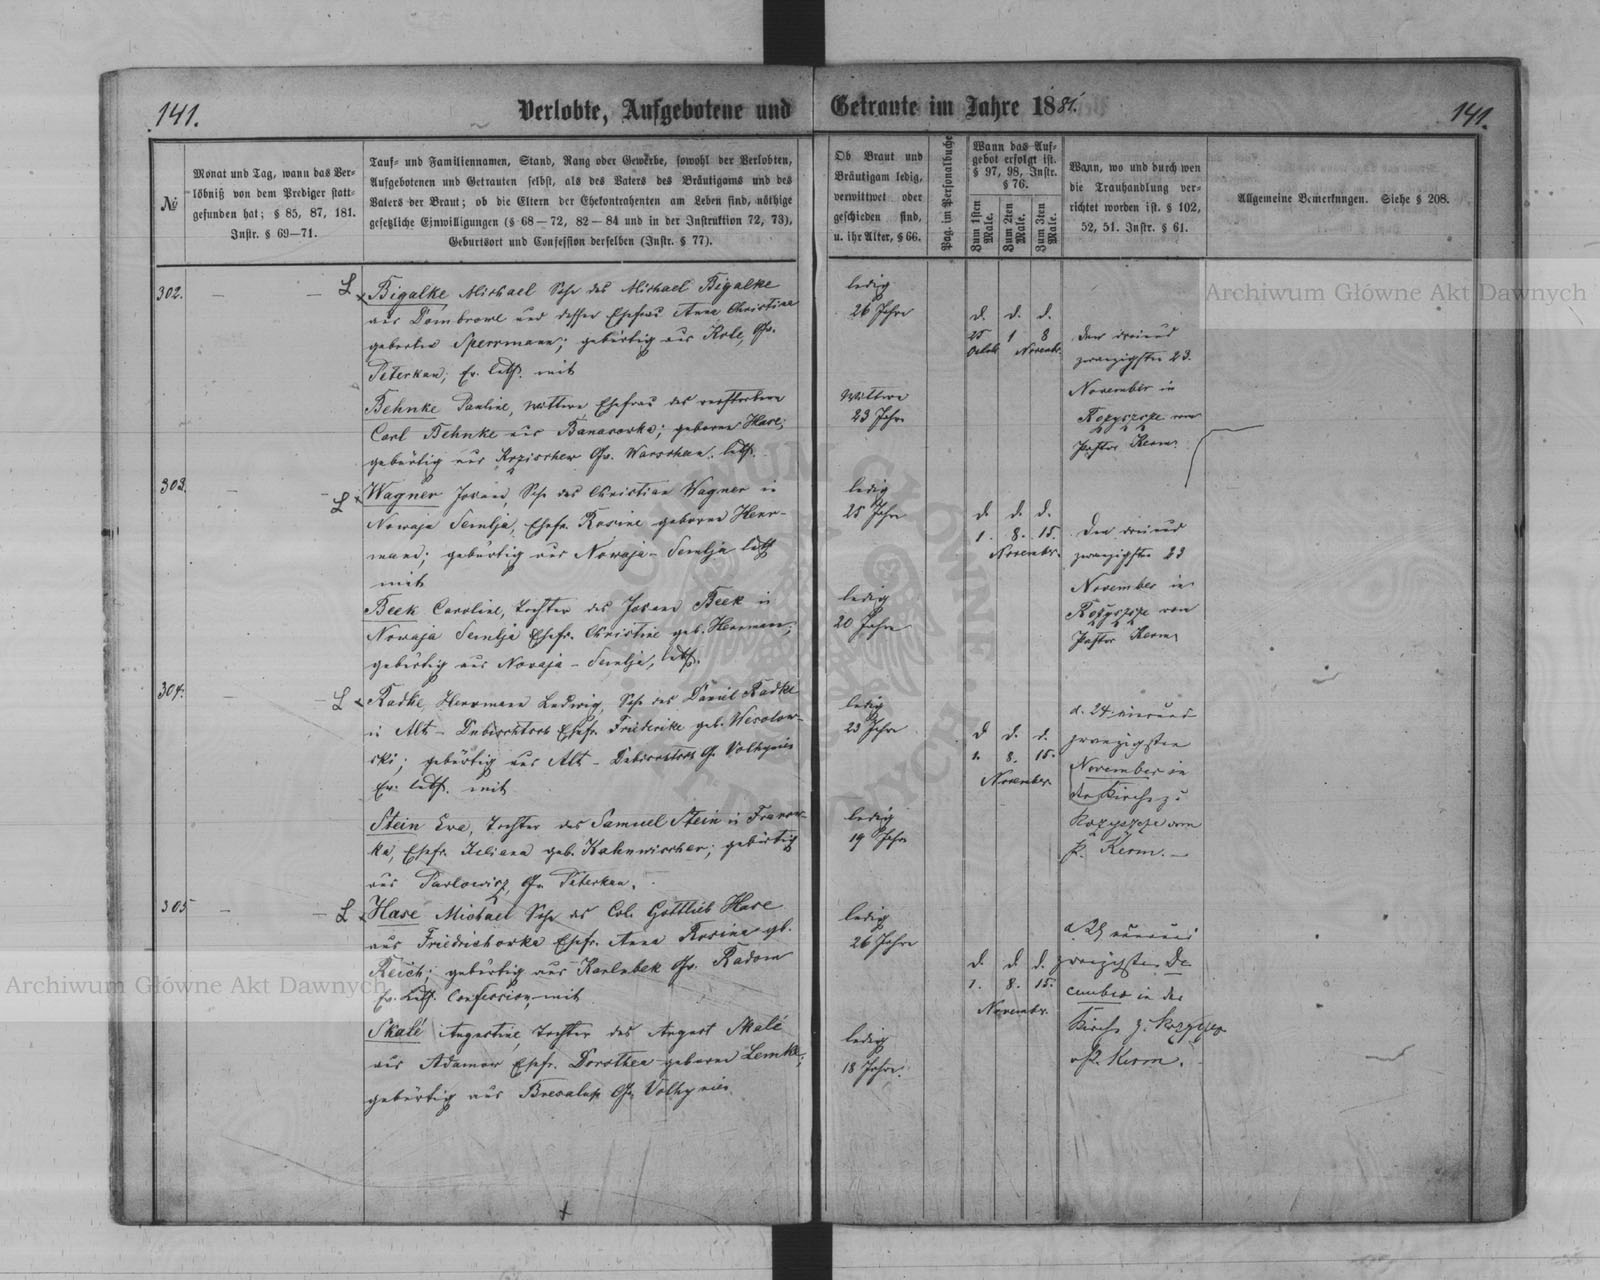 141.
Verlobte, Aufgebotene und Getraute im Jahre 1881.
141.
№
Monat und Tag, wann das Ver-
löbniß von dem Prediger statt-
gefunden hat; § 85, 87, 181.
Instr. § 69—71.
Tauf- und Familiennamen, Stand, Rang oder Gewerbe, sowohl der Verlobten,
Aufgebotenen und Getrauten selbst, als des Vaters des Bräutigams und des
Vaters der Braut; ob die Eltern der Ehekontrahenten am Leben sind, nöthige
gesetzliche Einwilligungen (§ 68—72, 82—84 und in der Instruktion 72, 73),
Geburtsort und Confession derselben (Instr. § 77).
Ob Braut und
Bräutigam ledig,
verwittwet oder
geschieden sind,
u. ihr Alter, § 66.
Pag. im Personalbuche
Wann das Auf-
gebot erfolgt ist.
§ 97, 98, Instr.
§ 76.
Zum 1sten Male.
Zum 2ten Male.
Zum 3ten Male.
Wann, wo und durch wen
die Trauhandlung ver-
richtet worden ist. § 102,
52, 51. Instr. § 61.
Allgemeine Bemerkungen. Siehe § 208.
302.
L
Bigalke Michael Sohn des Michael Bigalke
aus Dombrowe und dessen Ehefrau Anna Christine
geborene Sperrmann; gebürtig aus Kole, Gv.
Peterkau, Ev. luth. mit
Behnke Pauline, Wittwe Ehefrau des verstorbenen
Carl Behnke aus Banasowka; geborene Hase;
gebürtig aus Gv. Warschau, luth.
ledig
26 Jahre
Wittwe
23 Jahre
d. d. d.
25 1 8
Octob Novembr.
den dreiund
zwanzigsten 23.
November in
Rozyszcze von
Pastor Kerm
303.
L
Wagner Johann, Sohn des Christian Wagner in
Nowaja Semlja, Ehefr. Rosine geborene Herr-
mann; gebürtig aus Nowaja-Semlja luth
mit
Beek Caroline, Tochter des Johann Beek in
Nowaja Semlja Ehefr. Christine geb. Herrmann;
gebürtig aus Novaja-Semlja, luth.
ledig
25 Jahre
ledig
20 Jahre
d. d. d.
1. 8. 15.
Novembr.
Den dreiund
zwanzigsten 23
November in
Rozyszcze von
Pastor Kerm
304.
L
Radke, Herrmann Ludwig, Sohn des Daniel Radke
in Alt- Ehefr. Friederike geb. Wesolow-
ski; gebürtig aus Alt- Gv. Volhynien
Ev. luth. mit
Stein Eva, Tochter des Samuel Stein in
ka, Ehefr. Juliana geb. gebürtig
aus Pavlowicz, Gv. Peterkau.
ledig
23 Jahre
ledig
19 Jahre
d d. d.
1. 8. 15.
November
d. 24 vierund
zwanzigsten
November in
der Kirche zu
Rozyszcze vom
P. Kerm.
305
L
Hase Michael Sohn des Col. Gottlieb Hase
aus Friedrichowka Ehefr. Anna Rosina gb.
Reich; gebürtig aus Gv. Radom
Ev. Luth. Confession, mit
Skalé Augustine, Tochter des August Skalé
aus Adamow Ehefr. Dorothea geborene Lemke;
gebürtig aus Gv. Volhynien
ledig
26 Jahre
ledig
18 Jahre.
d. d. d.
1. 8. 15.
Novembr.
d. 29
zwanzigsten De-
cember in der
Kirche z. Rozyszcze
P. Kerm.
Archiwum Główne Akt Dawnych
Archiwum Główne Akt Dawnych